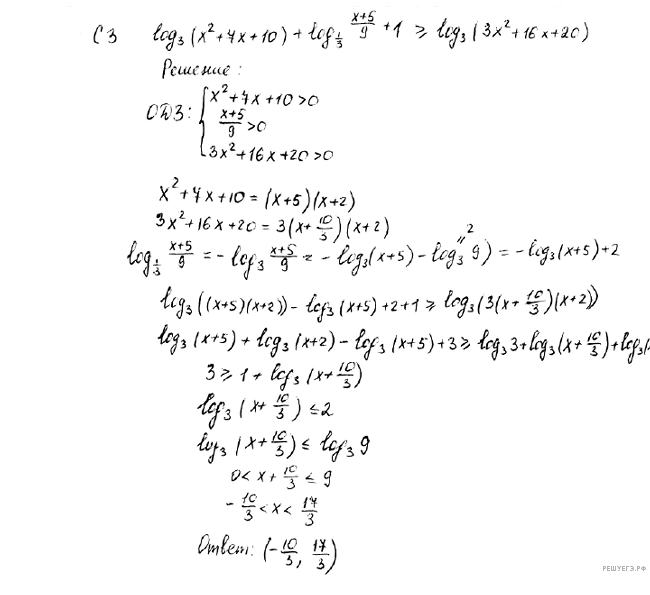 С3 log₃(x²+7x+10) + log_{1/3} (x+5)/9 + 1 ≥ log₃(3x²+16x+20)
Решение:
ОДЗ: { x²+7x+10>0
(x+5)/9 >0
3x²+16x+20>0
x²+7x+10 = (x+5)(x+2)
3x²+16x+20 = 3(x+10/3)(x+2)
log_{1/3} (x+5)/9 = -log₃ (x+5)/9 = -log₃(x+5) - log₃9) = -log₃(x+5)+2
2
log₃((x+5)(x+2)) - log₃(x+5)+2+1 ≥ log₃(3(x+10/3)(x+2))
log₃(x+5) + log₃(x+2) - log₃(x+5)+3 ≥ log₃3+log₃(x+10/3)+log₃(
3 ≥ 1 + log₃(x+10/3)
log₃(x+10/3) ≤ 2
log₃(x+10/3) ≤ log₃9
0 < x + 10/3 ≤ 9
-10/3 < x < 17/3
Ответ: (-10/3, 17/3)
РЕШУЕГЭ.РФ